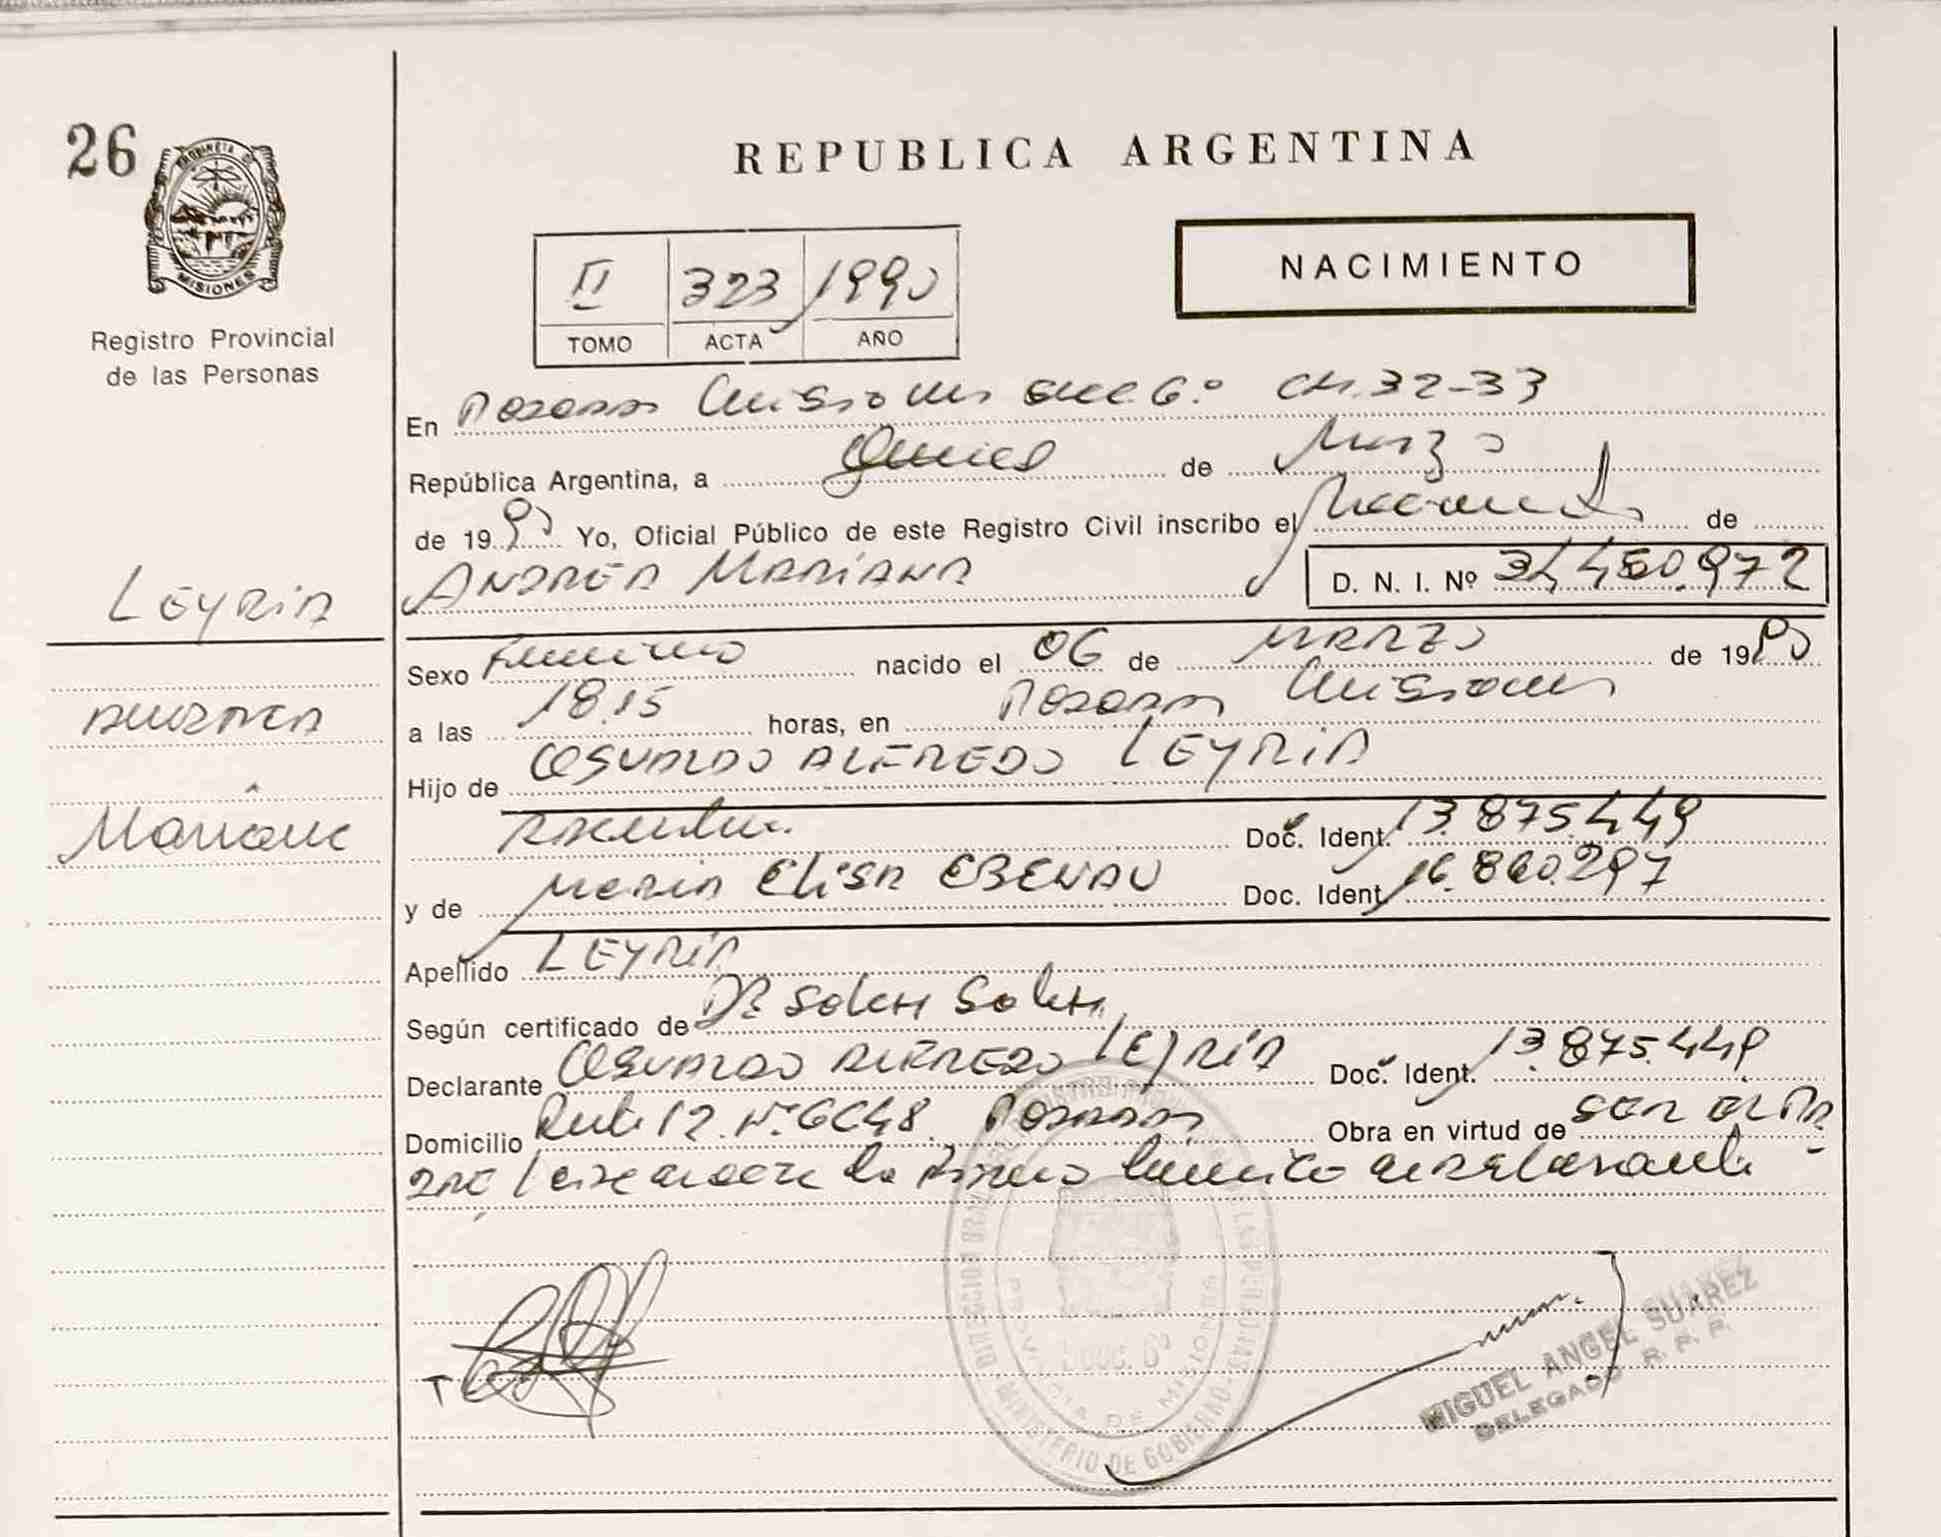 26
PROVINCIA DE
MISIONES
Registro Provincial
de las Personas
REPUBLICA ARGENTINA
NACIMIENTO
II 323 1990
TOMO ACTA AÑO
En Posadas Misiones Secc. 6º CH. 32-33
República Argentina, a Quince de Marzo
de 1990 Yo, Oficial Público de este Registro Civil inscribo el Nacimiento de
ANDREA MARIANA D. N. I. Nº 34.450.972
LEYRIA
ANDREA
Mariana
Sexo Femenino nacido el 06 de MARZO de 1990
a las 18.15 horas, en Posadas Misiones
Hijo de OSVALDO ALFREDO LEYRIA
Doc. Ident. 13.875.449
y de MARIA ELISA EBENAU Doc. Ident. 16.860.297
Apellido LEYRIA
Según certificado de DR.
Declarante OSVALDO ALFREDO LEYRÍA Doc. Ident. 13.875.449
Domicilio Ruta 12 Nº 6648 Posadas Obra en virtud de SER EL PA
DRE la Firma declarante
MINISTERIO DE GOBIERNO
PROVINCIA DE MISIONES
MIGUEL ANGEL SUAREZ
DELEGADO R. P. P.